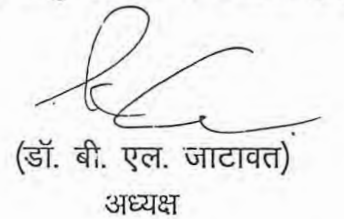 (डॉ. बी. एल. जाटावत)
अध्यक्ष